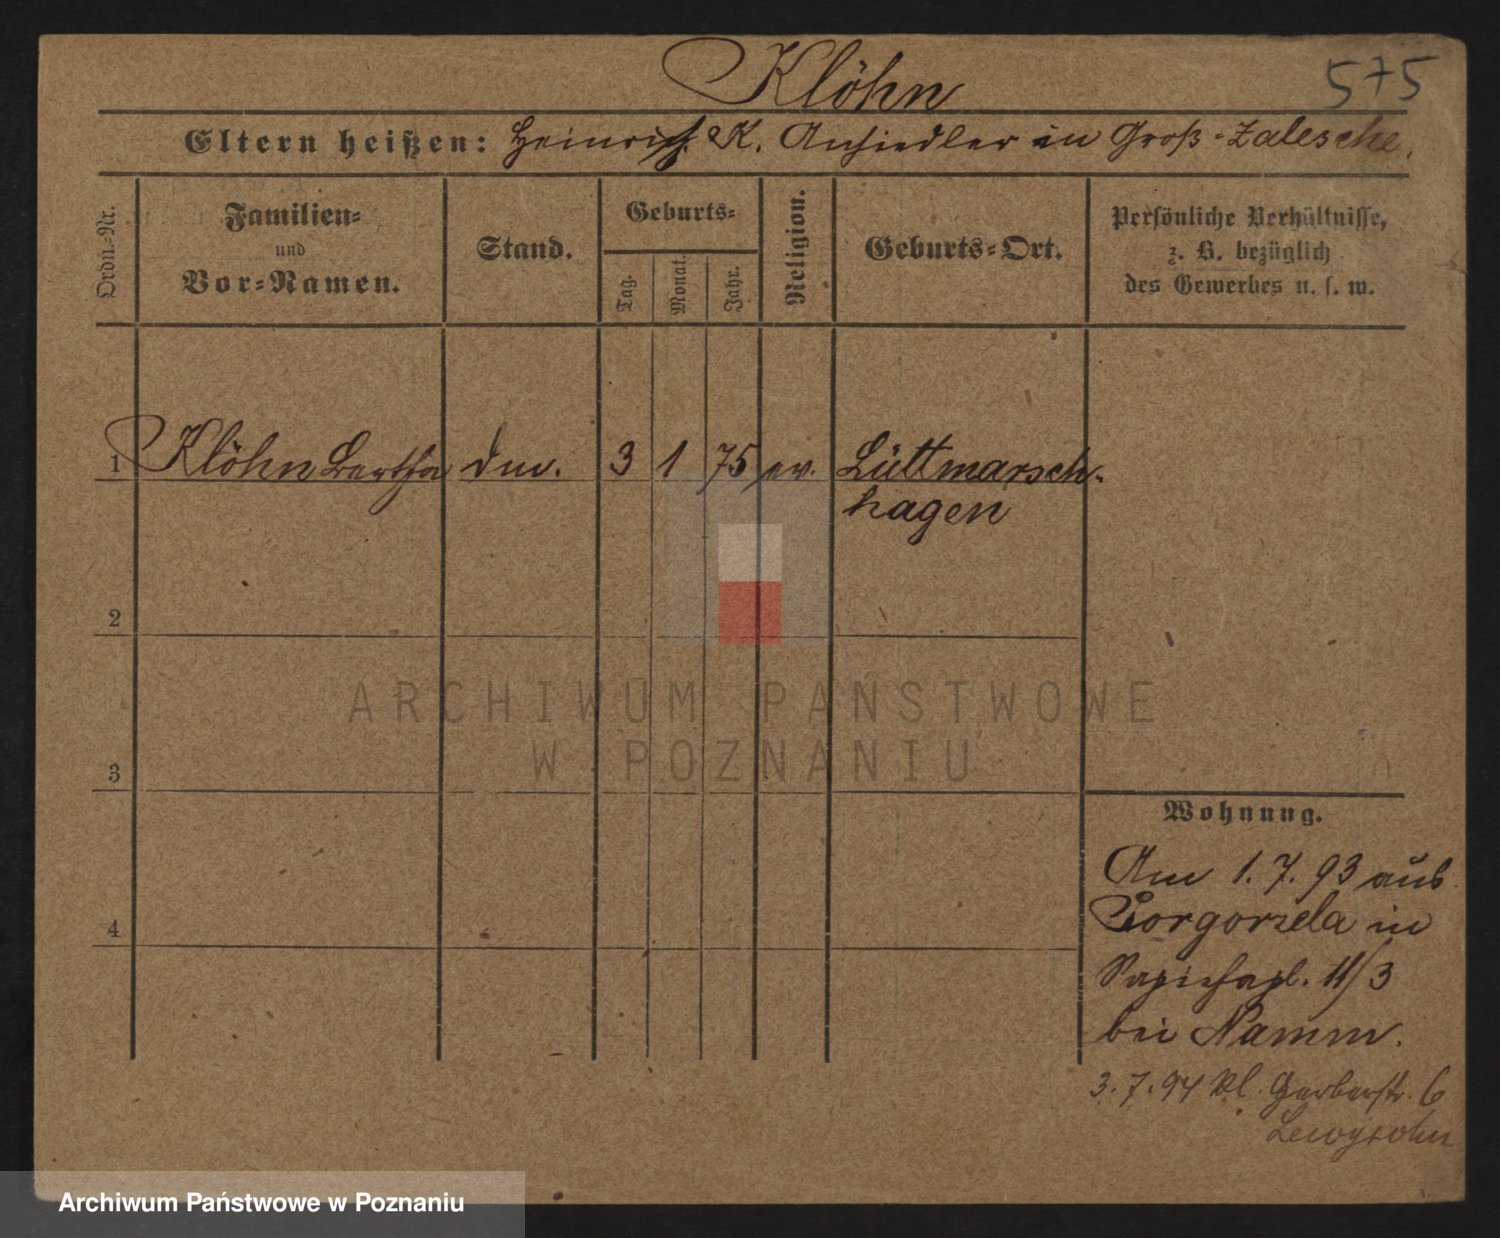 Klöhn
575
Eltern heißen: Heinrich K. Ansiedler in Groß-Zalesche.
Ordn.-Nr.
Familien-
und
Vor-Namen.
Stand.
Geburts-
Tag.
Monat.
Jahr.
Religion.
Geburts-Ort.
Persönliche Verhältnisse,
z. B. bezüglich
des Gewerbes u. s. w.
1 Klöhn Bertha 3 1 75 ev. Lüttmarsch-
hagen
2
3
4
Wohnung.
Am 1.7.93 aus
Pogorzela in
Sapiehapl. 11/3
bei Namm.
3.7.94 Kl. Gerberstr. 6
Lewysohn
ARCHIWUM PAŃSTWOWE
W POZNANIU
Archiwum Państwowe w Poznaniu